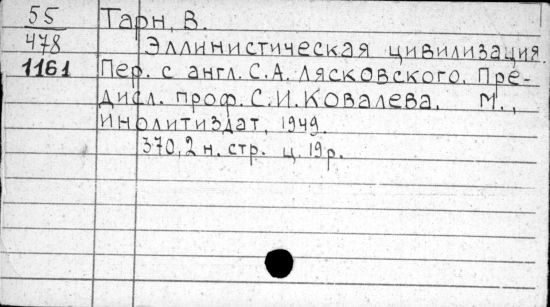 55 Тарн, В.
478 Эллинистическая цивилизация.
1161 Пер. с англ. С.А. Лясковского. Пре-
дисл. проф. С.И. Ковалева. М.,
Инолитиздат, 1949.
370, 2 н. стр. ц. 19 р.